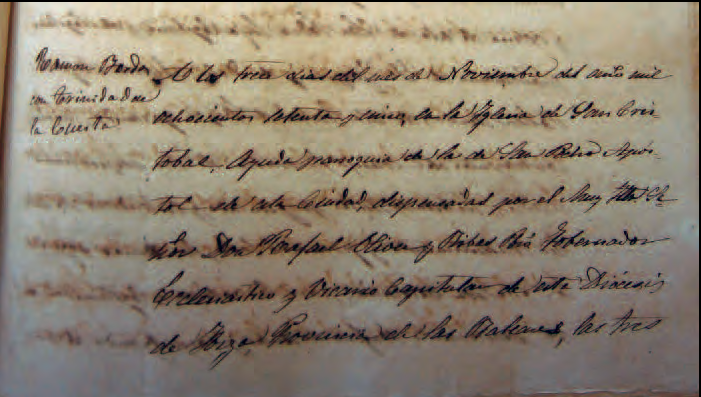 Ramon Bordas
con Trinidad de
la Cuesta
A los trece dias del mes de Noviembre del año mil
ochocientos setenta y cinco, en la Iglesia de San Cris-
tobal, Ayuda parroquia de la de San Pedro Após-
tol de esta Ciudad, dispensadas por el Muy Iltre Se-
ñor Don Rafael Oliver y Ribas Gobernador
Eclesiástico y Vicario Capitular de esta Diócesis
de Ibiza, Provincia de las Baleares, las tres